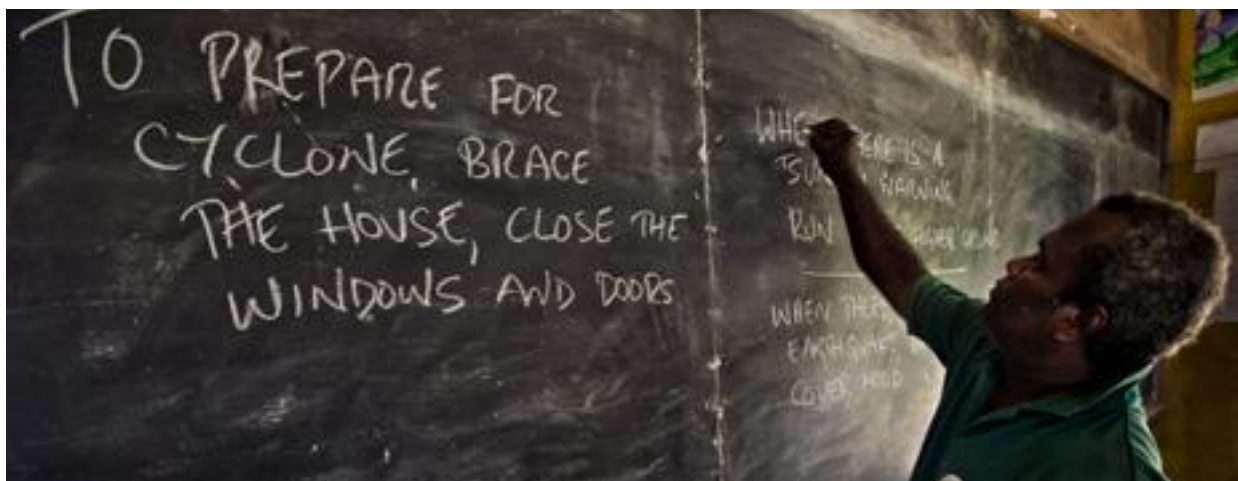 TO PREPARE FOR
CYCLONE, BRACE
THE HOUSE, CLOSE THE
WINDOWS AND DOORS
WHEN THERE IS A
TSUNAMI WARNING
RUN
WHEN THERE
EARTHQUAKE
COVER HEAD